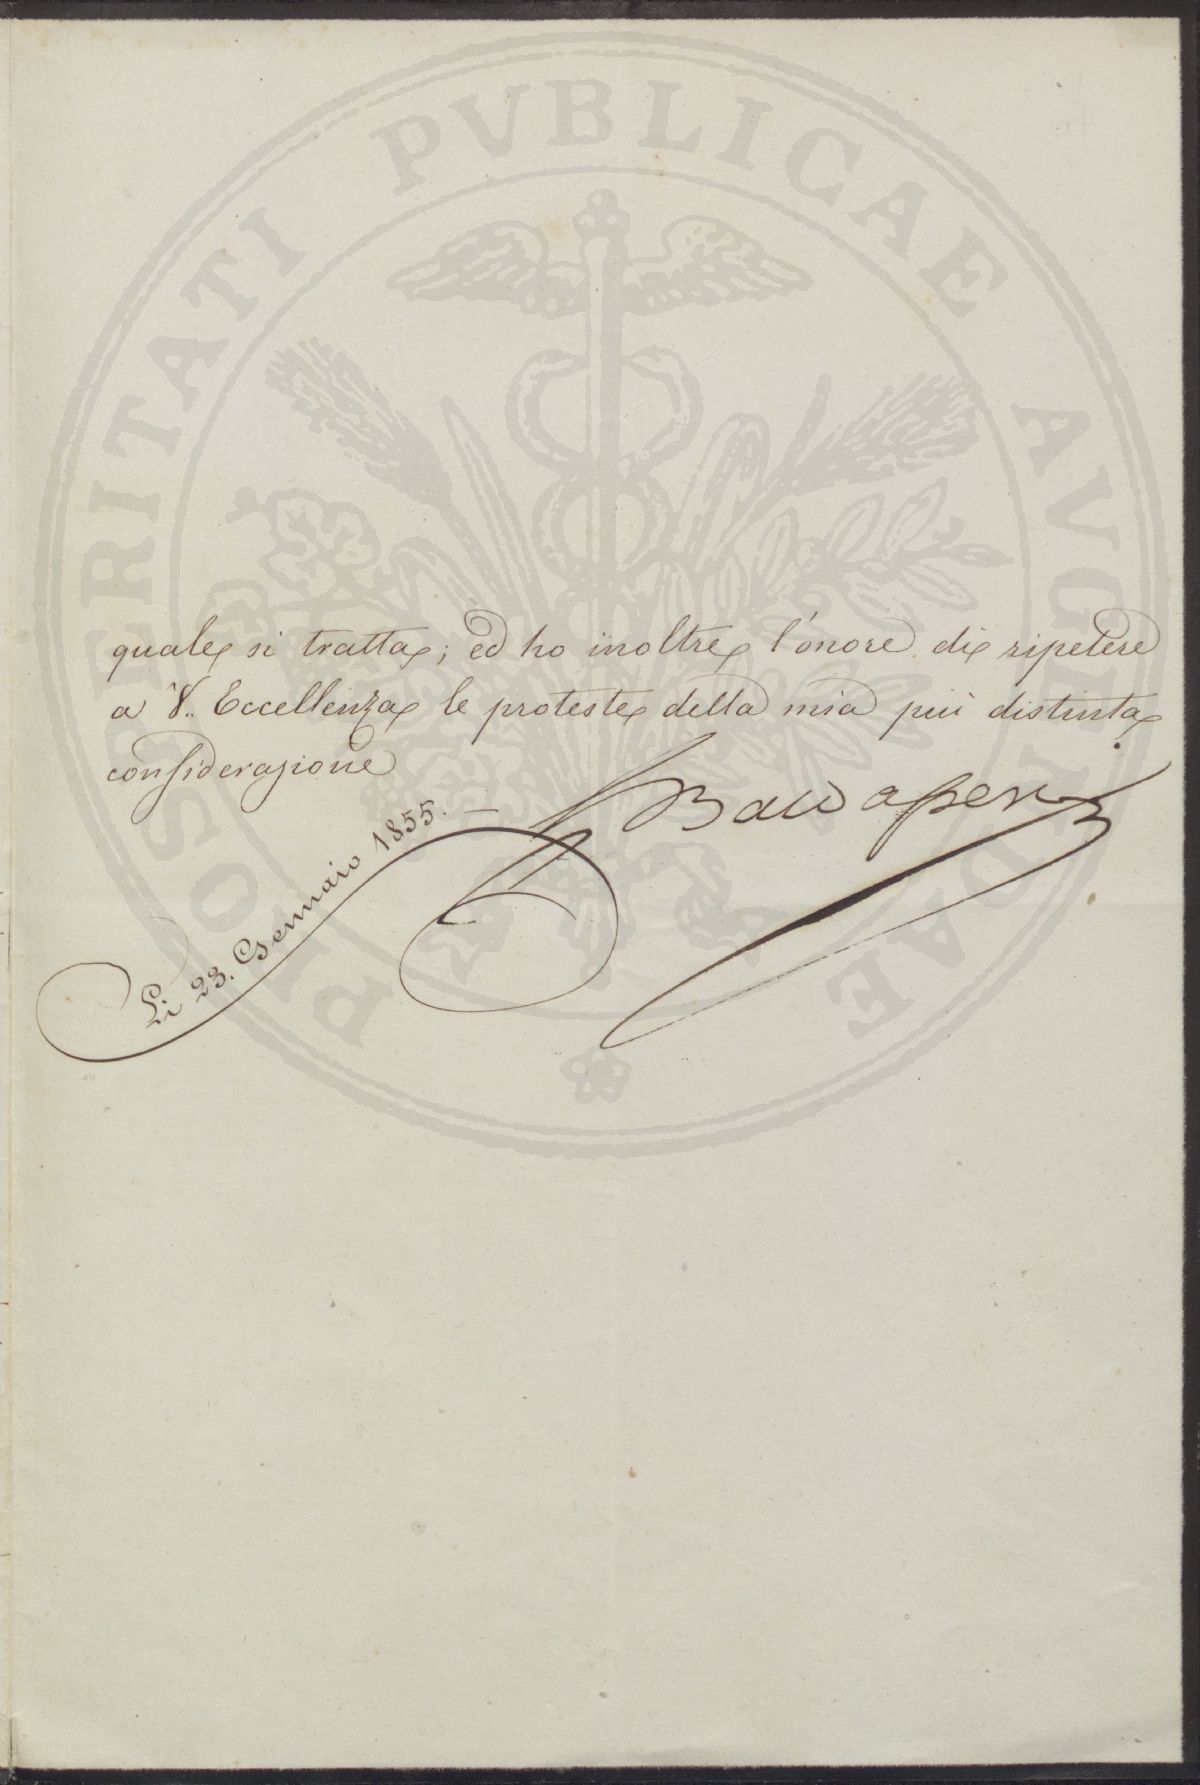 PROSPERITATI PVBLICAE AVGENDAE
quale si tratta; ed ho inoltre l'onore di ripetere
a V. Eccellenza le proteste della mia più distinta
considerazione
Li 23. Gennaio 1855. —